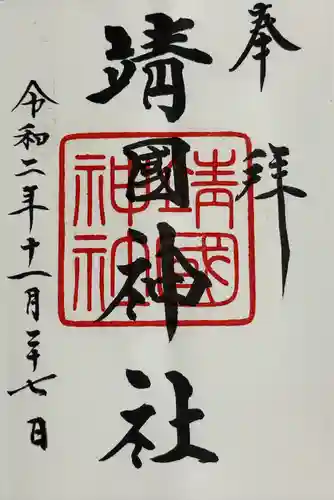 奉拝
靖國神社
靖國神社
令和二年十一月二十七日